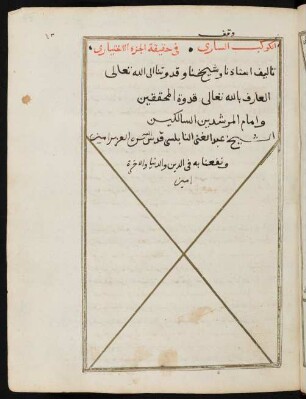 ١٣ وقف
الكوكب الساري في حقيقة الجزء الاختياري
تاليف استاذنا وشيخنا وقدوتنا الى الله تعالى
العارف بالله تعالى قدوة المحققين
وامام المرشدين السالكين
الشيخ عبد الغني النابلسي قدس سره العزيز امين
ونفعنا به في الدين والدنيا والاخرة
امين